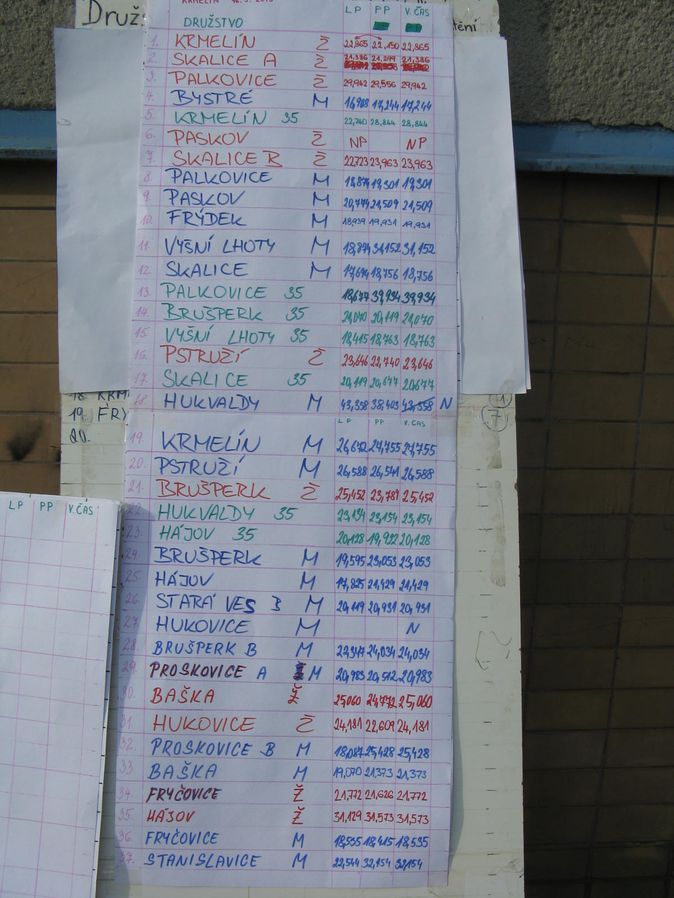 Druž
DRUŽSTVO LP PP V. ČAS
1. KRMELÍN Ž 22,865 22,150 22,865
2. SKALICE A Ž 21,386 21,299 21,386
3. PALKOVICE Ž 29,942 29,556 29,942
4. BYSTRÉ M 16,908 17,244 17,244
5. KRMELÍN 35 22,740 28,844 28,844
6. PASKOV Ž NP NP
7. SKALICE B Ž 22,723 23,963 23,963
8. PALKOVICE M 18,874 19,301 19,301
9. PASKOV M 20,774 21,509 21,509
10. FRÝDEK M 18,939 19,931 19,931
11. VYŠNÍ LHOTY M 18,894 31,152 31,152
12. SKALICE M 17,694 18,756 18,756
13. PALKOVICE 35 18,677 39,934 39,934
14. BRUŠPERK 35 21,070 20,119 21,070
15. VYŠNÍ LHOTY 35 18,415 18,763 18,763
16. PSTRUŽÍ Ž 23,646 22,740 23,646
17. SKALICE 35 20,119 20,677 20,677
18. HUKVALDY M 43,358 38,403 43,358 N
LP PP V. ČAS
19. KRMELÍN M 26,672 27,755 27,755
20. PSTRUŽÍ M 26,588 26,541 26,588
21. BRUŠPERK Ž 25,452 23,781 25,452
22. HUKVALDY 35 23,134 23,154 23,154
23. HÁJOV 35 20,128 19,922 20,128
24. BRUŠPERK M 19,595 23,053 23,053
25. HÁJOV M 17,825 21,429 21,429
26. STARÁ VES B M 20,119 20,931 20,931
27. HUKOVICE M N
28. BRUŠPERK B M 24,034 24,034
29. PROSKOVICE A M 20,983 20,512 20,983
30. BAŠKA Ž 25,060 24,772 25,060
31. HUKOVICE Ž 24,181 22,609 24,181
32. PROSKOVICE B M 18,087 25,428 25,428
33. BAŠKA M 19,070 21,373 21,373
34. FRYČOVICE Ž 21,772 21,626 21,772
35. HÁJOV Ž 31,129 31,573 31,573
36. FRYČOVICE M 18,535 18,415 18,535
37. STANISLAVICE M 22,544 32,154 32,154
18 KRM
19. FRY
20.
7
LP PP V. ČAS